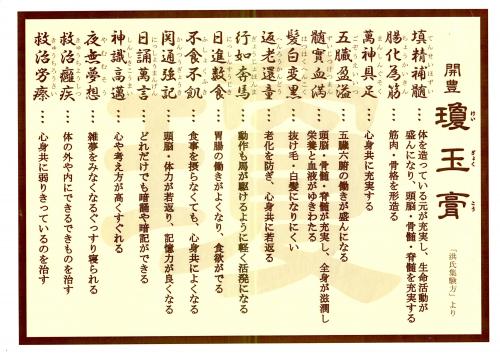 開豊
瓊玉膏
けい ぎょく こう
『洪氏集験方』より
填精補髄…体を造っている元が充実し、生命活動が
盛んになり、頭脳・骨髄・脊髄を充実する
腸化為筋…筋肉・骨格を形造る
萬神具足…心身共に充実する
五臓盈溢…五臓六腑の働きが盛んになる
髄實血満…頭脳・骨髄・脊髄が充実し、全身が滋潤し
栄養と血液がゆきわたる
髪白變黒…抜け毛・白髪になりにくい
返老還童…老化を防ぎ、心身共に若返る
行如奔馬…動作も馬が駆けるように軽く活溌になる
日進數食…胃腸の働きがよくなり、食欲がでる
不食不飢…食事を摂らなくても、心身共によくなる
関通強記…頭脳・体力が若返り、記憶力が良くなる
日誦萬言…どれだけでも暗誦や暗記ができる
神識高邁…心や考え方が高くすぐれる
夜無夢想…雑夢をみなくなるぐっすり寝られる
救治癰疾…体の外や内にできるできものを治す
救治労瘵…心身共に弱りきっているのを治す